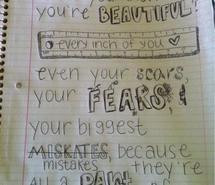 you're BEAUTIFUL!
every inch of you
even your scars,
your FEARS, &
your biggest
MISKATES, because
mistakes they're